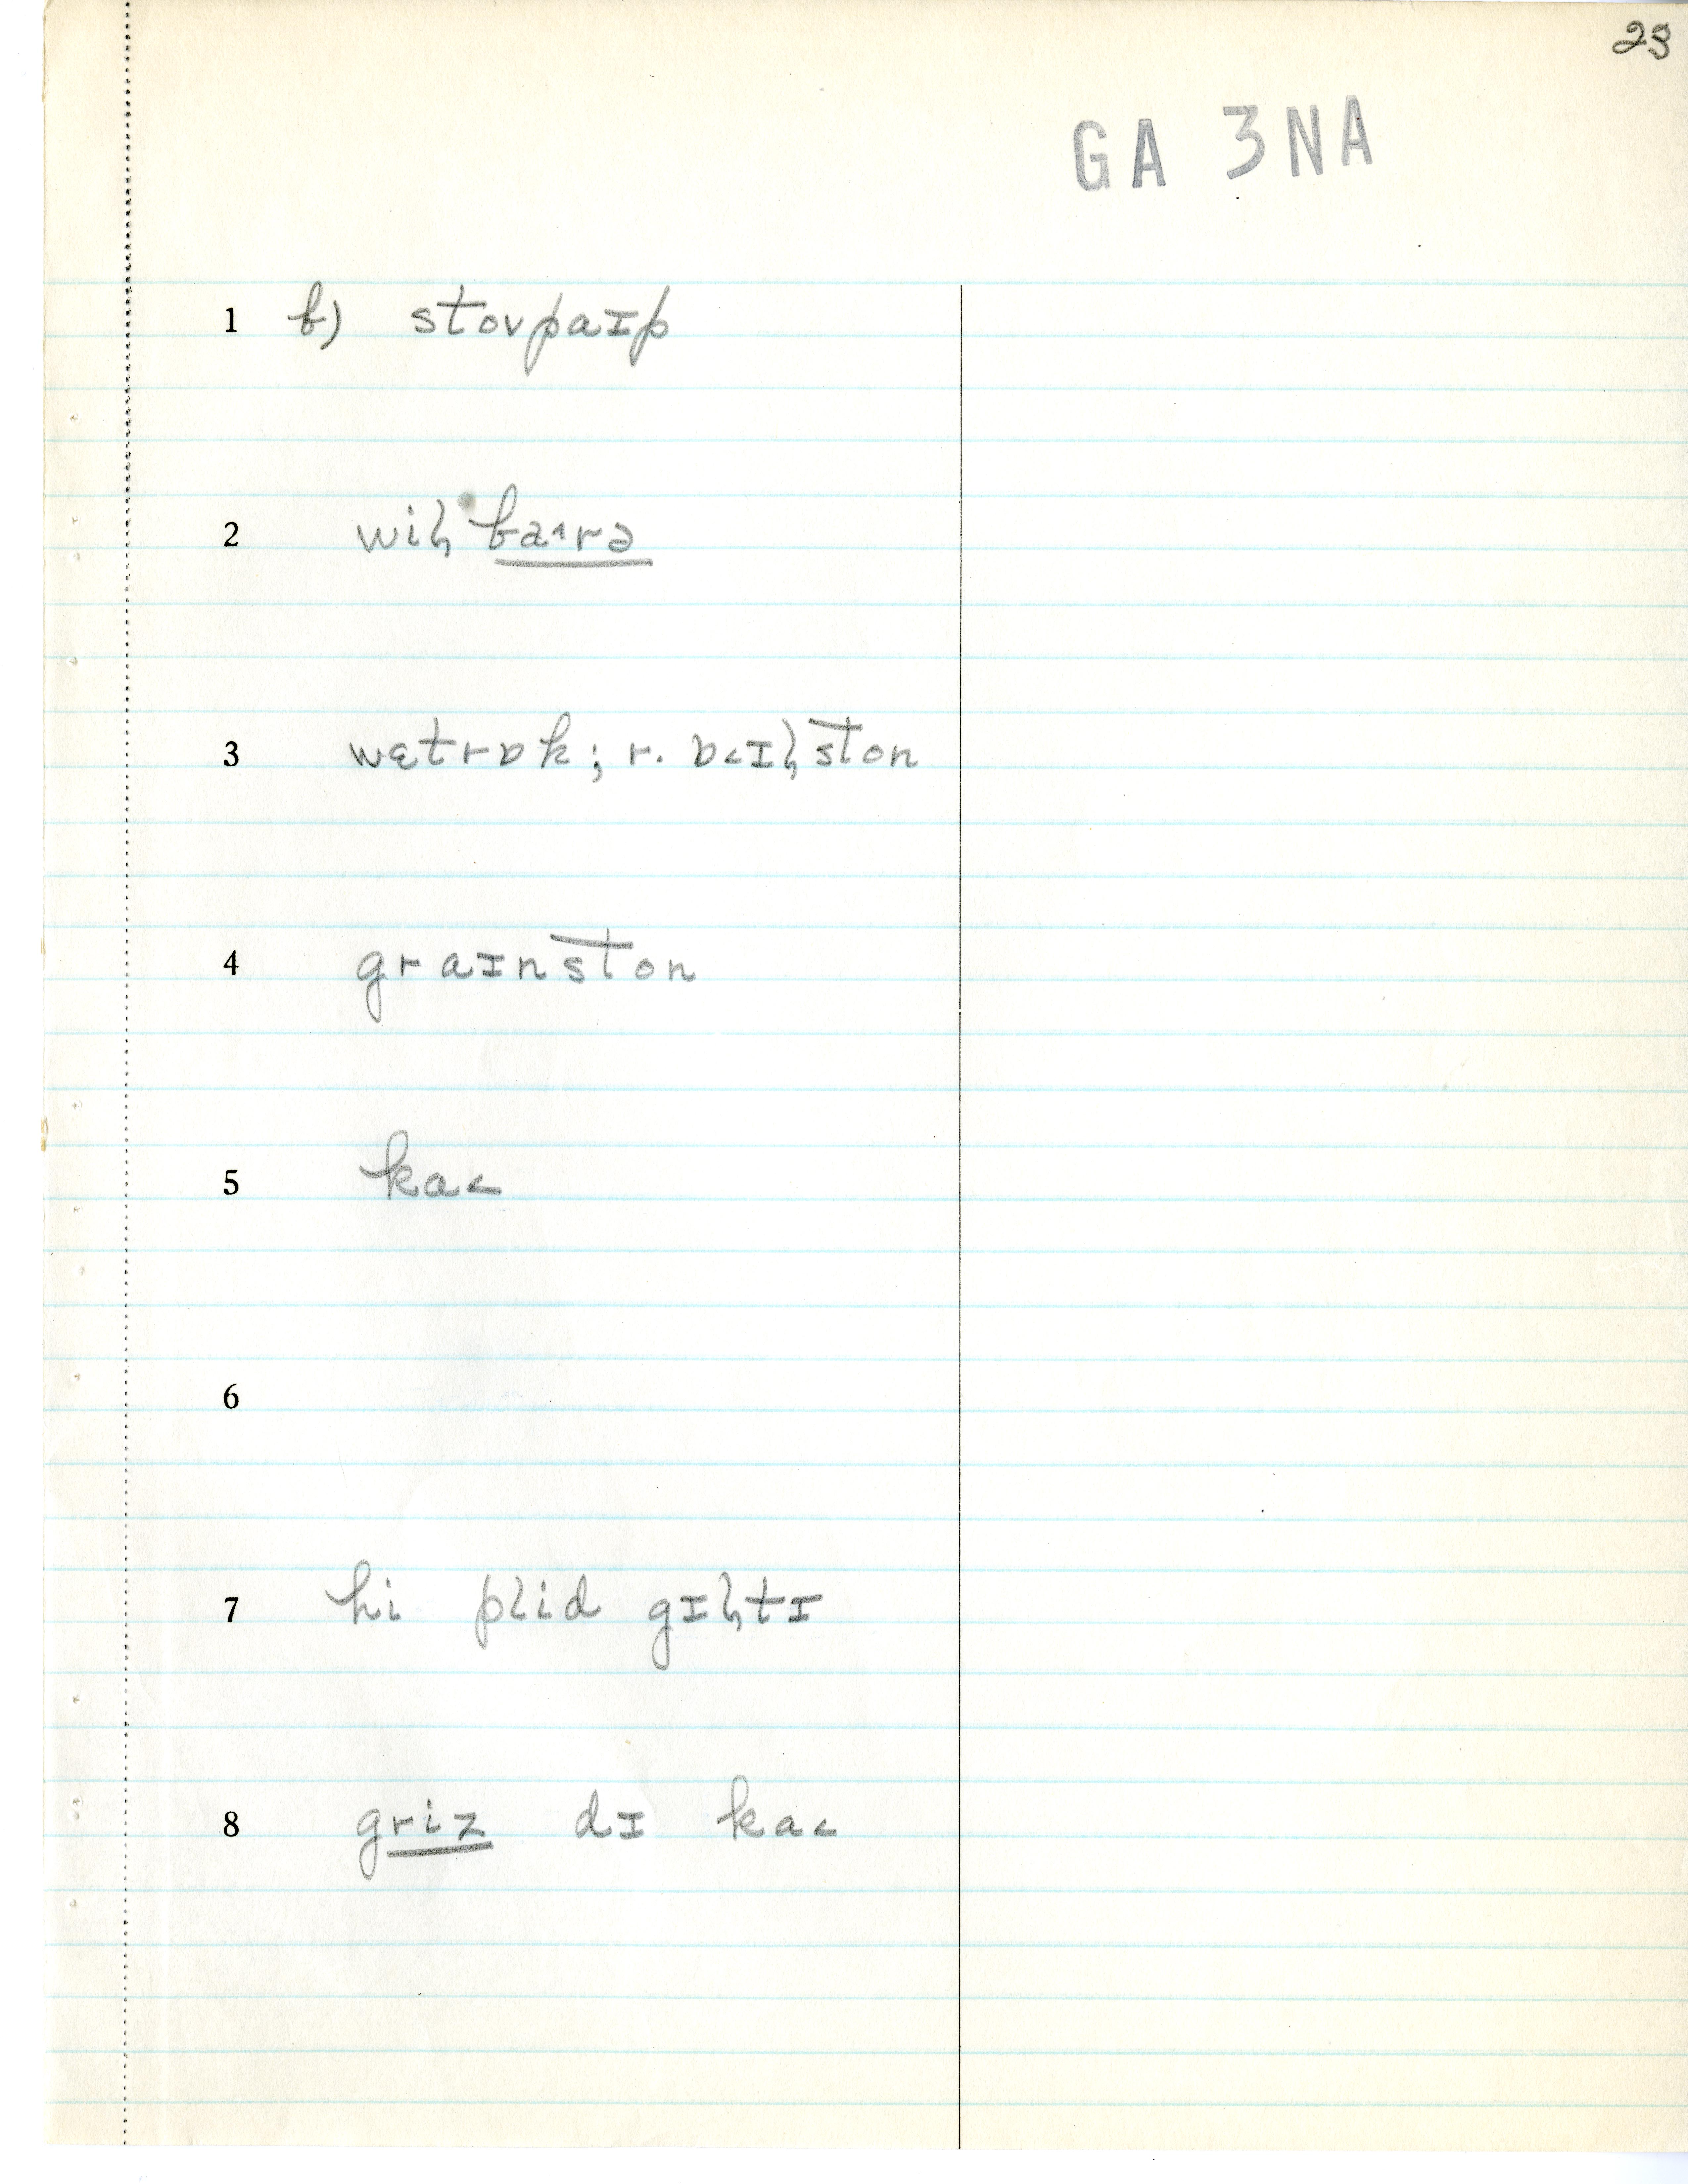 23
GA 3NA
1 b) stovpaɪp
2 wiɫ ba˄rə
3 wɛtrɒk; r. ɒ˂ɪɫston
4 graɪnston
5 ka˂
6
7 hi plid gɪɫtɪ
8 griz dɪ ka˂